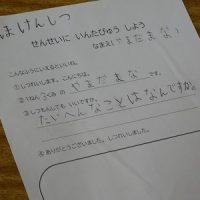 まけんしつ
せんせいに いんたびゅう しよう
なまえ( やまだまな )
こんなふうにいえるといいね。
①しつれいします。こんにちは。
②1ねん3くみの やまだまな です。
③しつもんしても いいですか。
たいへんなことはなんですか。
④ありがとうございました。しつれいしました。